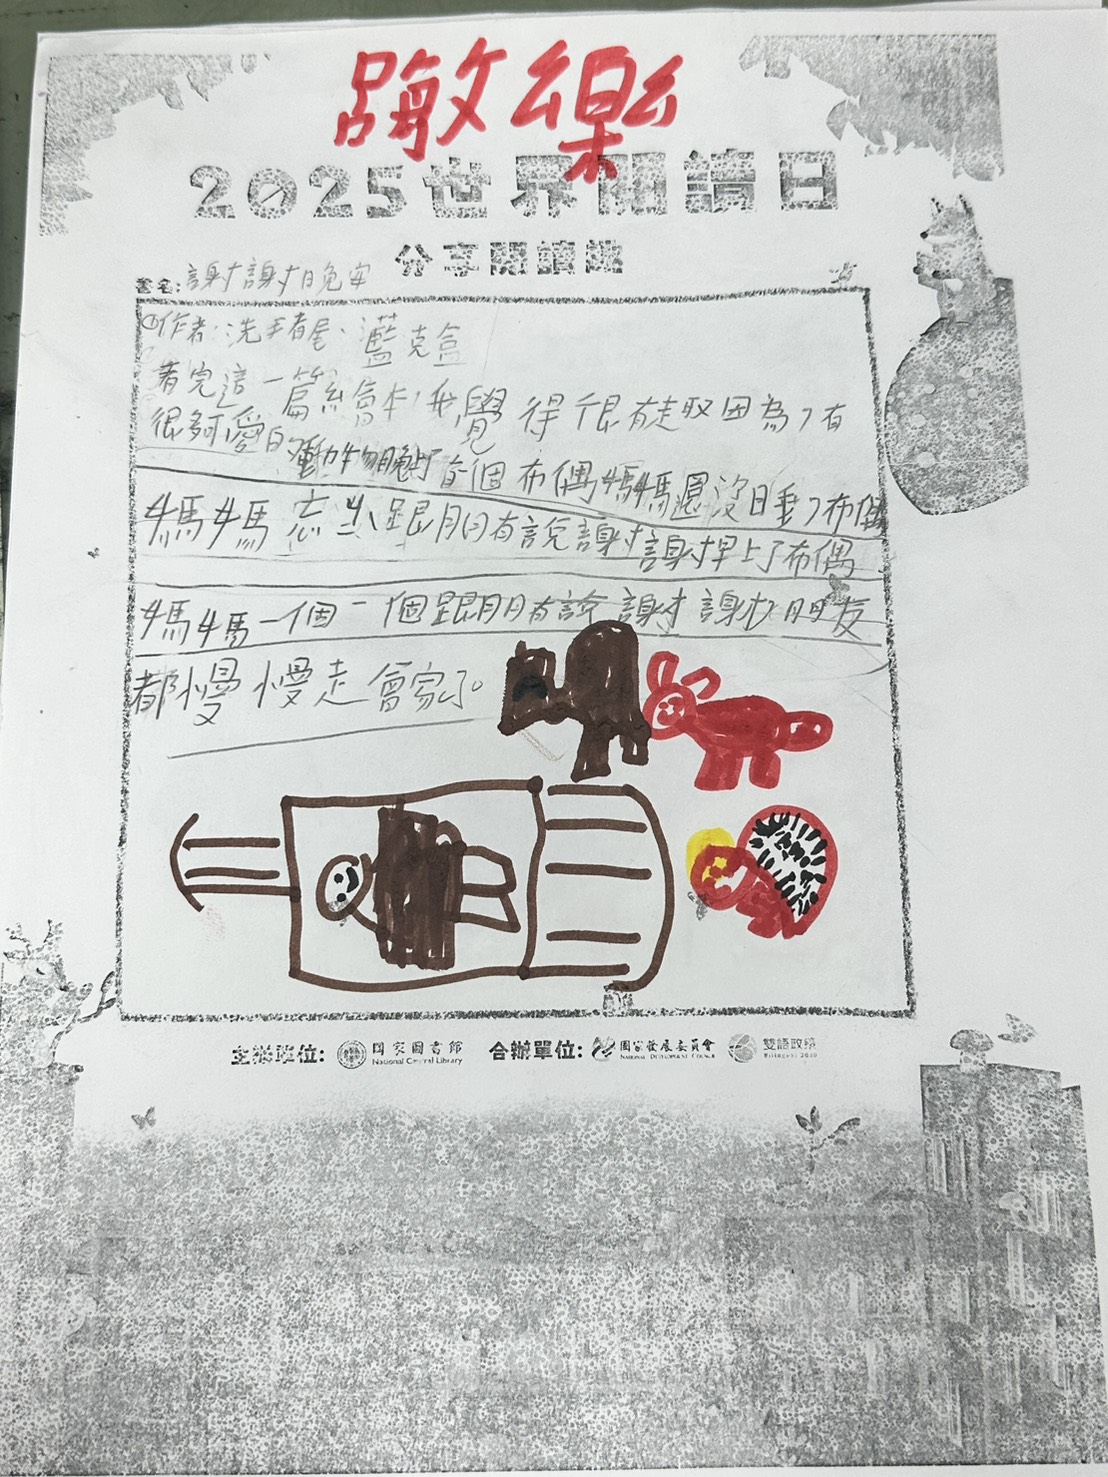 敏樂
2025世界閱讀日
分享閱讀趣
書名:謝謝晚安
①作者:洗手者尾、藍克盒
看完這一篇繪本,我覺得很有走取因為,有
很多可愛的動物晚上了有個布偶媽媽還沒睡,布偶
媽媽忘出跟朋有說謝謝早上了布偶
媽媽一個一個跟朋有說謝謝朋友
都慢慢走會家了。
主辦單位: 國家圖書館 合辦單位: 國家發展委員會 雙語政策
National Central Library NATIONAL DEVELOPMENT COUNCIL Bilingual 2030